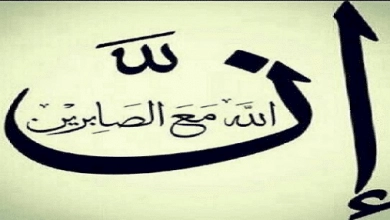 إنّ اللهَ مَعَ الصَابِرين